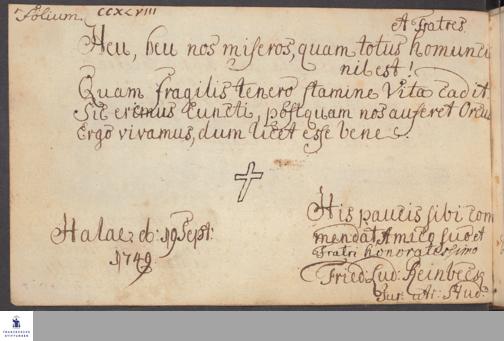 Folium CCXLVIII
A Fratres
Heu, heu nos miseros, quam totus homunci
nil est!
Quam fragilis tenero stamine Vita cadit
Sic erimus cuncti, postquam nos auferet Orcus
Ergo vivamus, dum licet esse bene.
Halae d: 19 Sept:
1749
His paucis sibi com
mendat Amico suo et
Fratri honoratissimo
Frid: Lud:
Jur: utr: Stud:
FRANCKESCHE
STIFTUNGEN